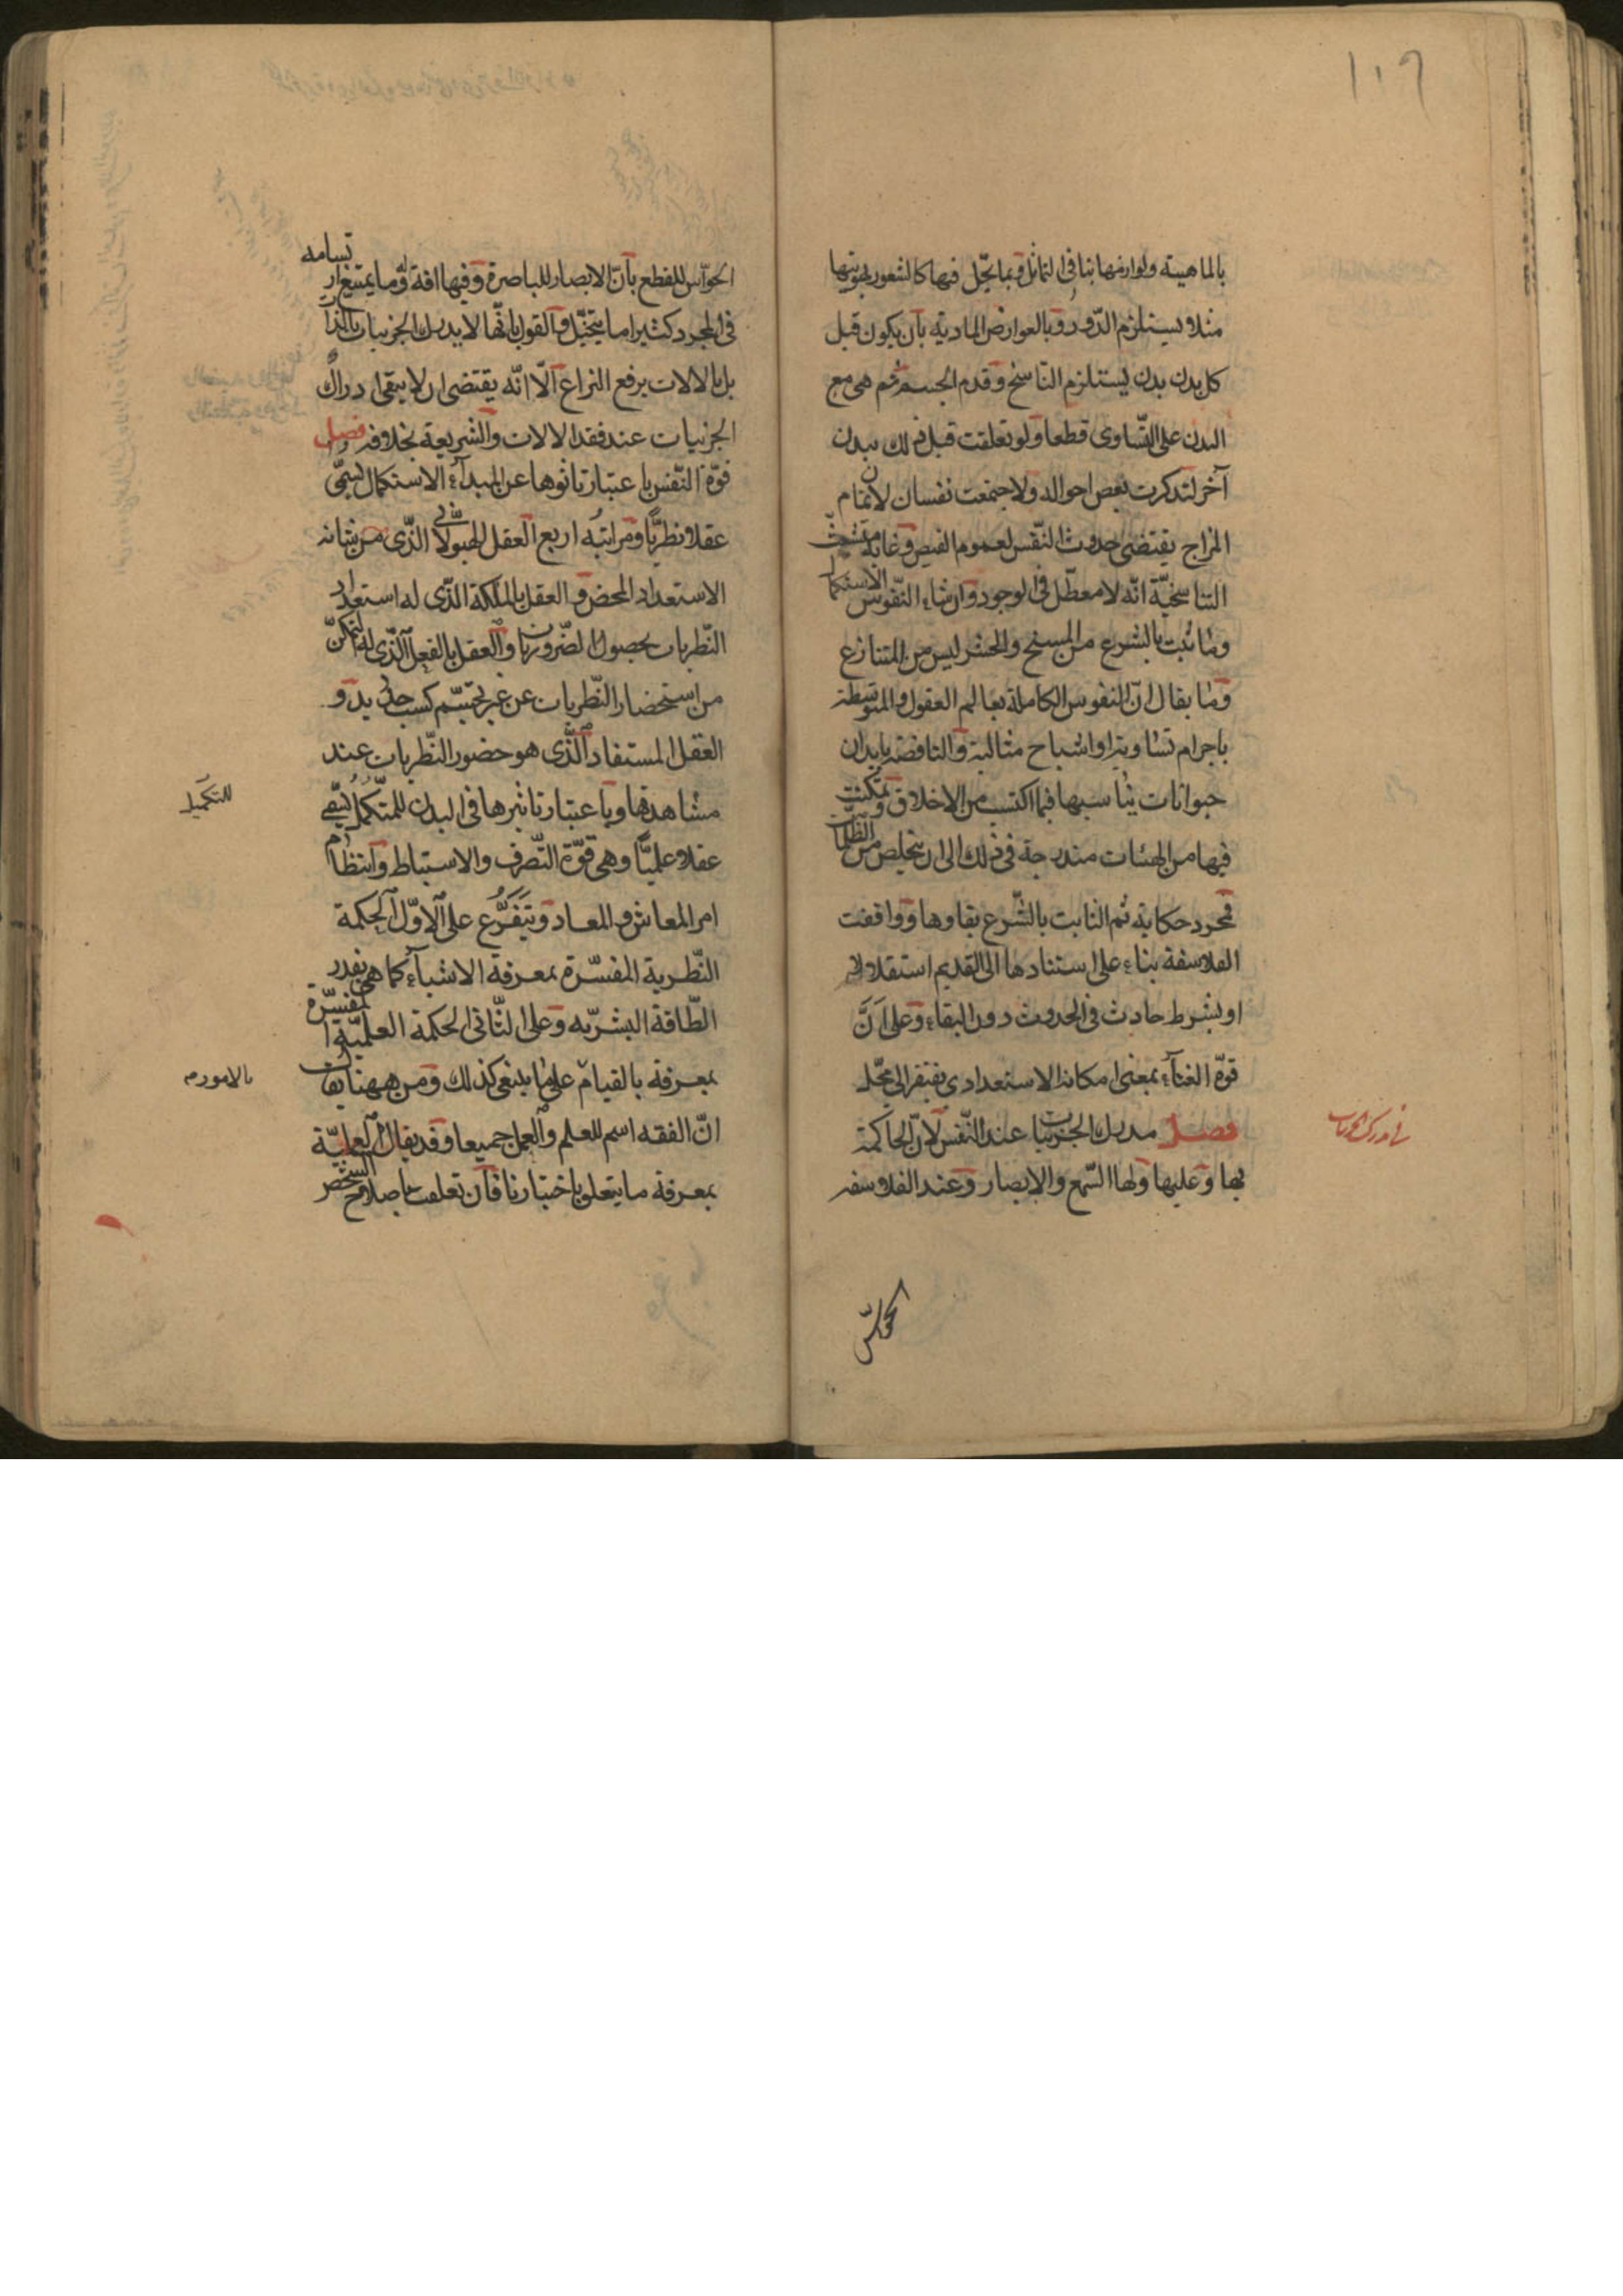 ١٠٩
بالماهية ولوازمها ينافى التماثل وبما يحل فيها كالشعور بهويتها
مثلا يستلزم الدّور وبالعوارض المادية بأن يكون قبل
كل بدن بدن يستلزم التناسخ وقدم الجسم ثم هى مع
البدن على التّساوى قطعا ولو تعلقت قبل ذلك ببدن
آخر لتذكرت بعض احواله ولاجتمعت نفسان لان تمام
المزاج يقتضى حدوث النّفس لعموم الفيض وغاية متشبث
التناسخيّة انّه لا معطّل فى الوجود وان شاء النّفوس الاستكمال
وما ثبت بالشرع من المسخ والحشر ليس من المتنازع
وما يقال ان النفوس الكاملة بعالم العقول والمتوسطة
باجرام سماوية او اشباح مثالية والناقصة بابدان
حيوانات يناسبها فيما اكتسب من الاخلاق وتمكنت
فيها من الهيئات متدرجة فى ذلك الى ان يتخلص من الظلمات
فمجرد حكاية ثم الثابت بالشّرع بقاوها ووافقت
الفلاسفة بناء على استنادها الى القديم استقلالا
او بشرط حادث فى الحدوث دون البقاء وعلى انّ
قوّة الفناء بمعنى امكانه الاستعدادى يفتقر الى محلّ
فصل مدرك الجزئيات عندنا النّفس لانّ الحاكمة
بها وعليها ولها السّمع والابصار وعند الفلاسفه
فى مدرك الجزئيات
الحواسّ
الحواسّ للقطع بأنّ الابصار للباصرة وفيها افة لها وما يمتنع ارتسامه
فى المجرد كثيرا ما يتخيّل والقول بانّها لا يدرك الجزئيات بالذات
بل بالالات يرفع النزاع الّا انّه يقتضى ان لا يبقى ادراك
الجزئيات عند فقد الالات والشريعة بخلافه فصل
قوّة النّفس باعتبار تاثرها عن المبدأ للاستكمال يسمّى
عقلا نظريًّا ومراتبه اربع العقل الهيولانى الذّى من شانه
الاستعداد المحض والعقل بالملكة الذّى له استعداد
النّظريات بحصول الضّروريات والعقل بالفعل الّذى له التمكن
من استحضار النّظريات عن غير تجشّم كسب جديد و
العقل المستفاد الّذى هو حضور النّظريات عند
مشاهدتها وباعتبار تاثيرها فى البدن للتكميل يسمى
عقلا عمليًّا وهى قوّة التّصرف والاستنباط وانتظام
امر المعاش والمعاد ويتفرّع على الاوّل الحكمة
النّظرية المفسّرة بمعرفة الاشياء كما هى بقدر
الطّاقة البشريّه وعلى الثّانى الحكمة العمليّة المفسّرة
بمعرفة بالقيام على ما ينبغى كذلك ومن ههنا يقال
انّ الفقه اسم للعلم والعمل جميعا وقد يقال العمليّة
بمعرفة ما يتعلق باختيارنا فان تعلقت باصلاح الشخص
للتكميل
بالامور م